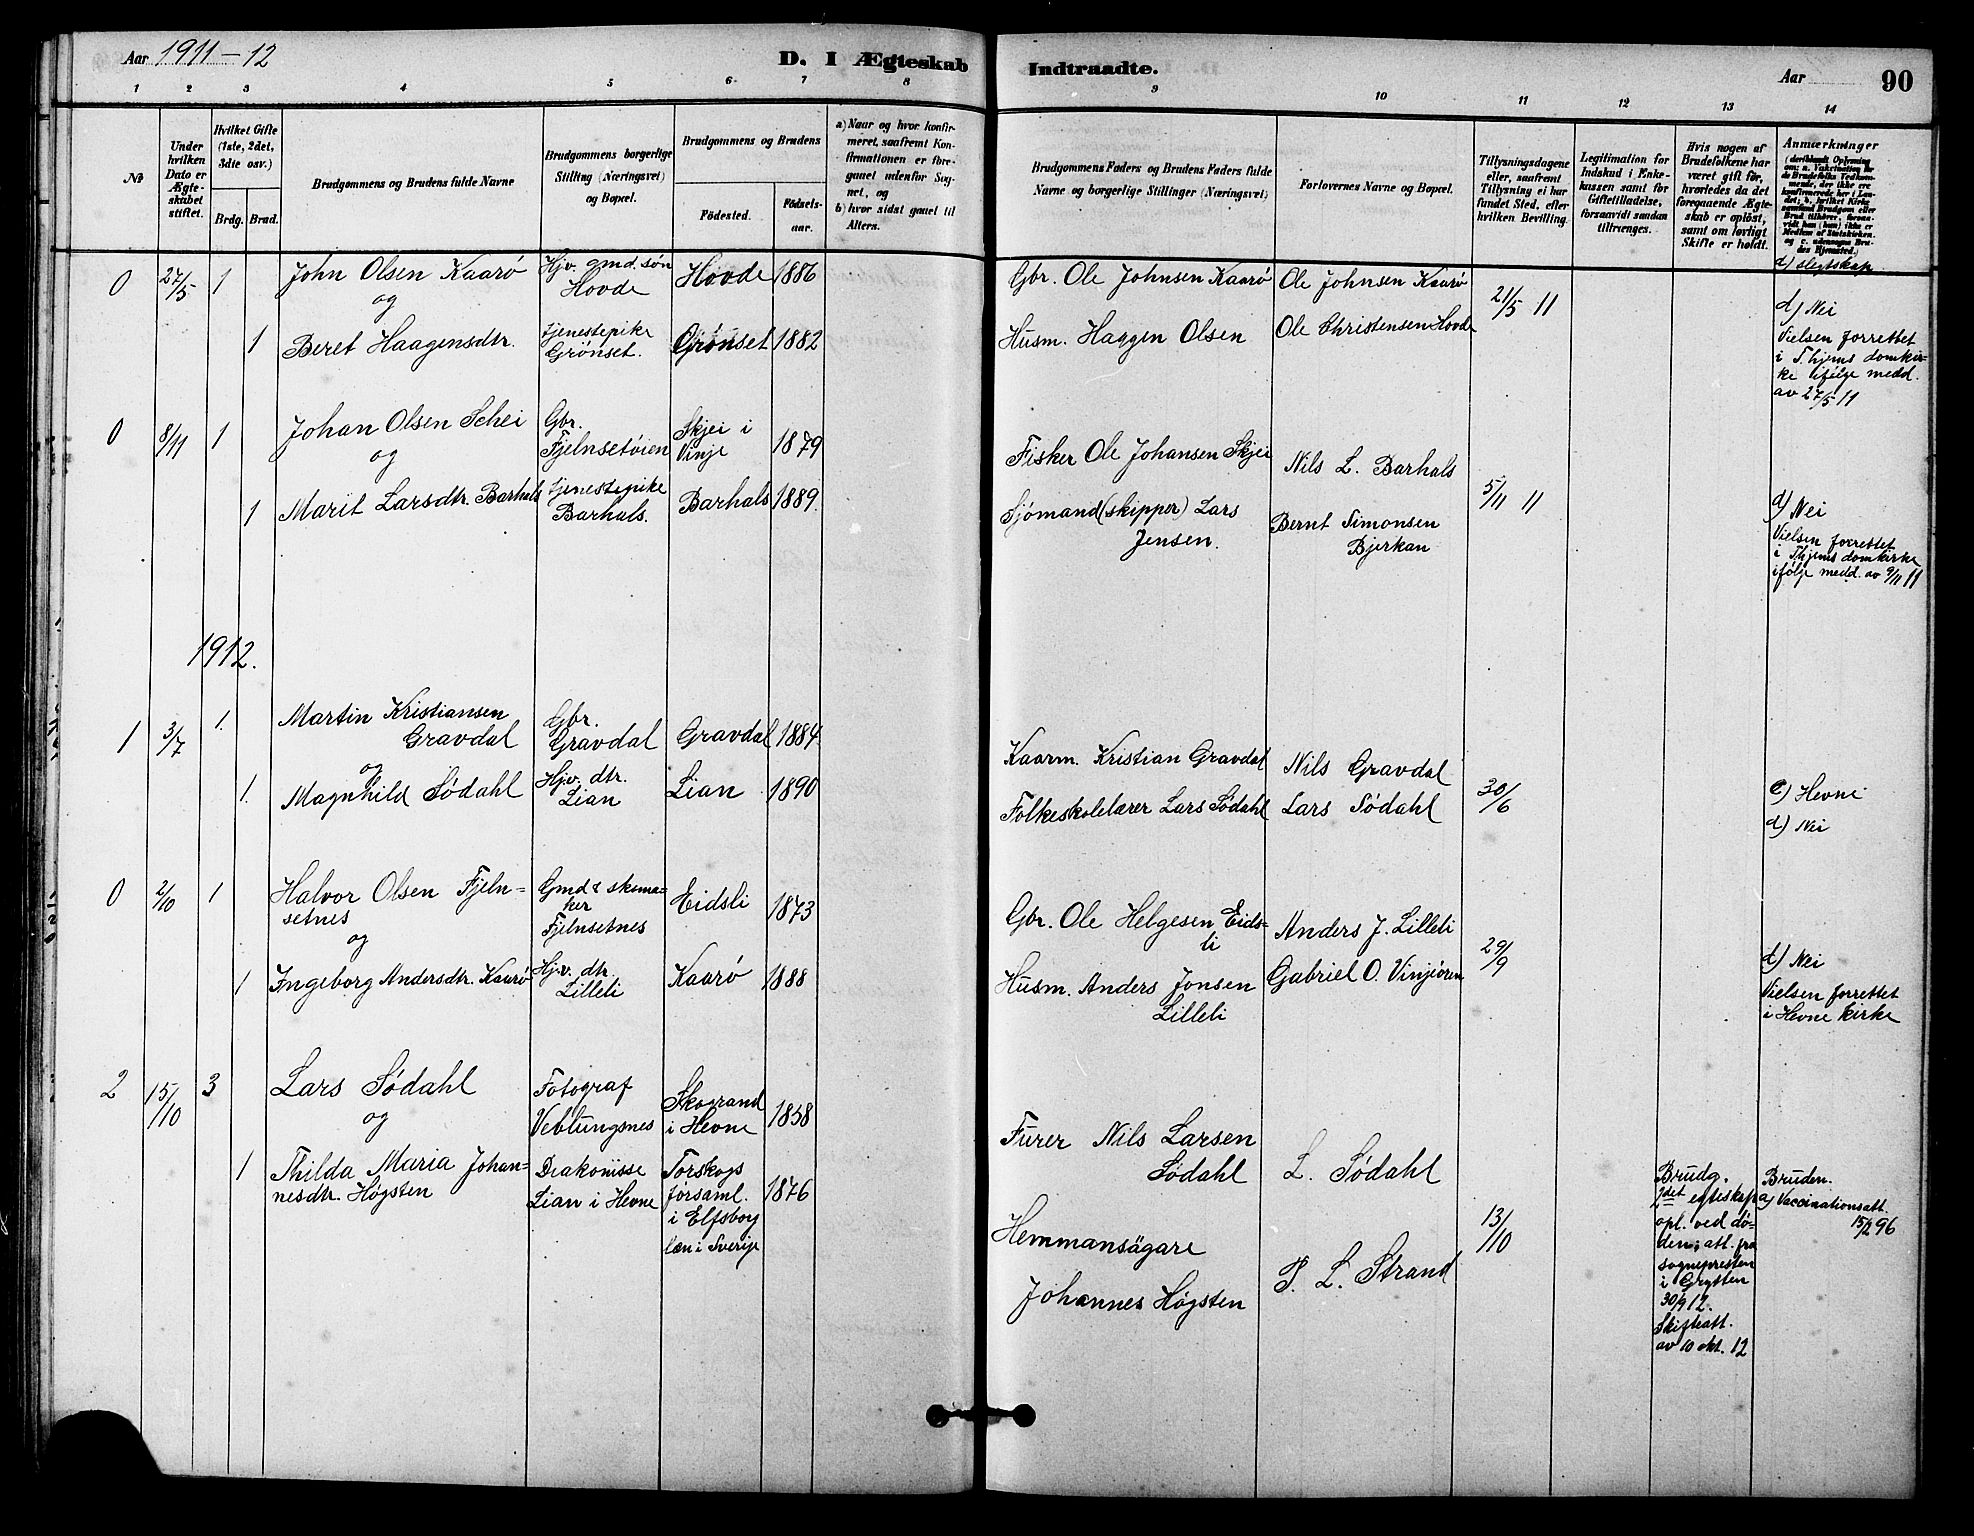 Aar 1911-12
D. I Ægteskab
1 2 3 4 5 6 7 8
No
Under hvilken Dato er Ægteskabet stiftet.
Hvilket Gifte (1ste, 2det, 3die osv.)
Brdg. Brud.
Brudgommens og Brudens fulde Navne
Brudgommens borgerlige Stilling (Næringsvei) og Bopæl.
Brudgommens og Brudens
Fødested.
Fødselsaar.
a) Naar og hvor konfirmeret, saafremt Konfirmationen er foregaaet udenfor Sognet, og
b) hvor sidst gaaet til Alters.
0 27/5 1 John Olsen Kaarø Hjv. gmd. søn Hovde Hovde 1886
og
1 Beret Haagensdtr. tjenestepike Grönset. Grönset 1882
0 8/11 1 Johan Olsen Schei Gbr. Fjelnsetøien Skjei i Vinje 1879
og
1 Marit Larsdtr. Barhals tjenestepike Barhals. Barhals 1889.
1912.
1 3/7 1. Martin Kristiansen Gravdal Gbr. Gravdal Gravdal 1884
og
1. Magnhild Södahl Hjv. dtr. Lian Lian 1890
0 2/10 1 Halvor Olsen Fjelnsetnes Gmd & skomaker Fjelnsetnes Eidsli 1873
og
1 Ingeborg Andersdtr. Kaarø Hjv. dtr. Lilleli Kaarø 1888
2 15/10 3 Lars Södahl Fotograf Veblungsnes Skogrand i Hevne 1858
og
1 Thilda Maria Johannesdtr. Høgsten Diakonisse Lian i Hevne Torskogs forsaml. i Elfsborg læn i Sverige 1876
Indtraadte.
Aar 90
9 10 11 12 13 14
Brudgommens Faders og Brudens Faders fulde Navne og borgerlige Stillinger (Næringsvei)
Forlovernes Navne og Bopæl.
Tillysningsdagene eller, saafremt Tillysning ei har fundet Sted, efter hvilken Bevilling.
Legitimation for Indskud i Enkekassen samt for Giftetilladelse, forsaavidt saadan tiltrænges.
Hvis nogen af Brudefolkene har været gift før, hvorledes da det foregaaende Ægteskab er opløst, samt om lovligt Skifte er holdt.
Anmærkninger
d) slegtskap
Gbr. Ole Johnsen Kaarø Ole Johnsen Kaarø 21/5 11
Husm. Haagen Olsen Ole Christensen Hovde
d) Nei
Vielsen forrettet
i T.hjems domkir-
ke ifølge medd.
av 27/5 11
Fisker Ole Johansen Skjei Nils L. Barhals 5/11 11
Sjömand (skipper) Lars Jensen. Bernt Simonsen Bjerkan
d) Nei
Vielsen forrettet
i Thjems domkirke
ifølge medd. av 9/11 11
Kaarm. Kristian Gravdal Nils Gravdal 30/6
Folkeskolelærer Lars Södahl Lars Södahl
c) Hevne
d) Nei
Gbr. Ole Helgesen Eidsli Anders J. Lilleli 29/9
Husm. Anders Jonsen Lilleli Gabriel O. Vinjeören
d) Nei
Vielsen forrettet
i Hevne kirke
Furer Nils Larsen Södahl L. Södahl 13/10
Hemmansägare Johannes Høgsten P. L. Strand
Brudg.
2det egteskap
opl. ved dø-
den, att. fra
sognepresten
i Grytten
30/9 12.
Skifteatt.
av 10 okt. 12
Bruden.
a) Vaccinationsatt.
15/2 96